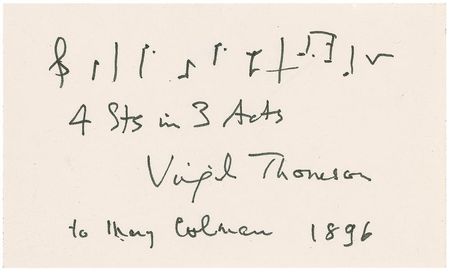 4 Sts in 3 Acts
Virgil Thomson
to Mary Colman 1896